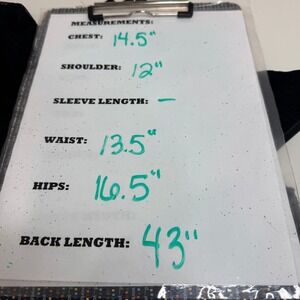 MEASUREMENTS:
CHEST: 14.5"
SHOULDER: 12"
SLEEVE LENGTH: —
WAIST: 13.5"
HIPS: 16.5"
BACK LENGTH: 43"